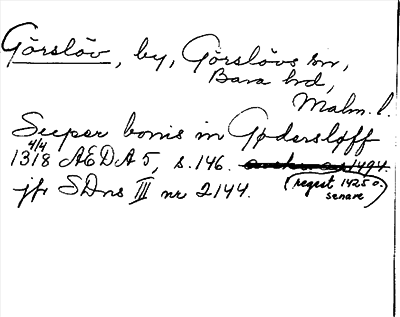 Görslöv, by, Görslövs sn,
Bara hd,
Malm. l.
Super bonis in Gødersløff
4/4
1318 ÆDA 5, s. 146. 1494.
(regest 1425 o.
senare)
jfr SDns III nr 2144.